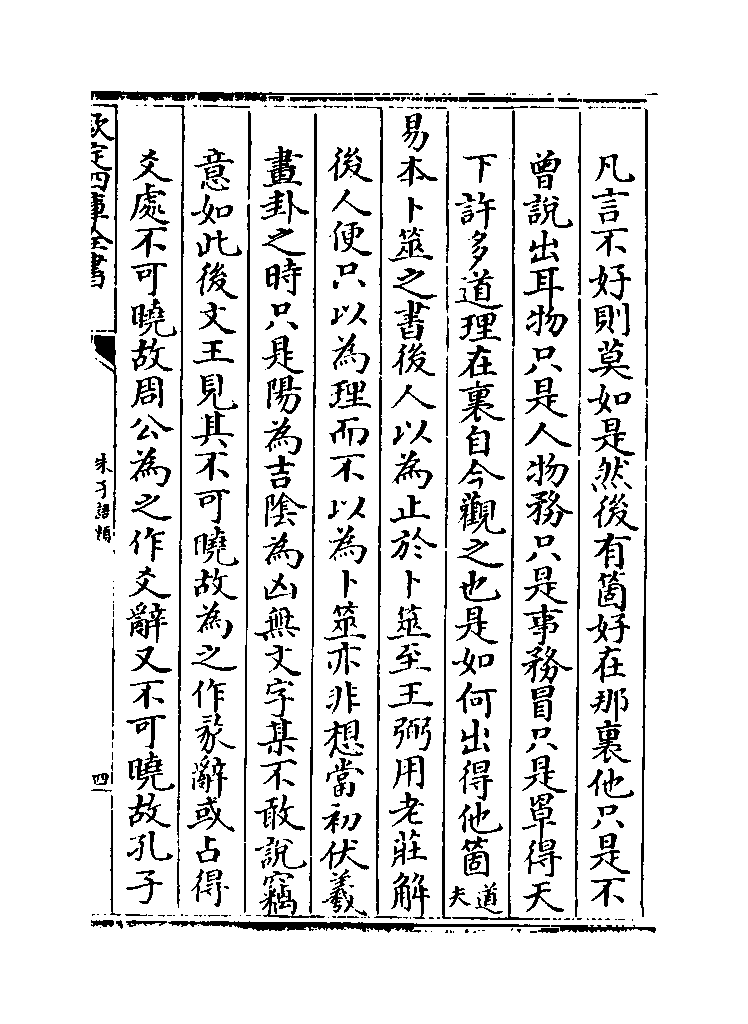 凡言不好則莫如是然後有箇好在那裏他只是不
曾說出耳物只是人物務只是事務冒只是罩得天
下許多道理在裏自今觀之也是如何出得他箇道夫
易本卜筮之書後人以為止於卜筮至王弼用老莊解
後人便只以為理而不以為卜筮亦非想當初伏羲
畫卦之時只是陽為吉陰為凶無文字某不敢說竊
意如此後文王見其不可曉故為之作彖辭或占得
爻處不可曉故周公為之作爻辭又不可曉故孔子
欽定四庫全書
朱子語類
四